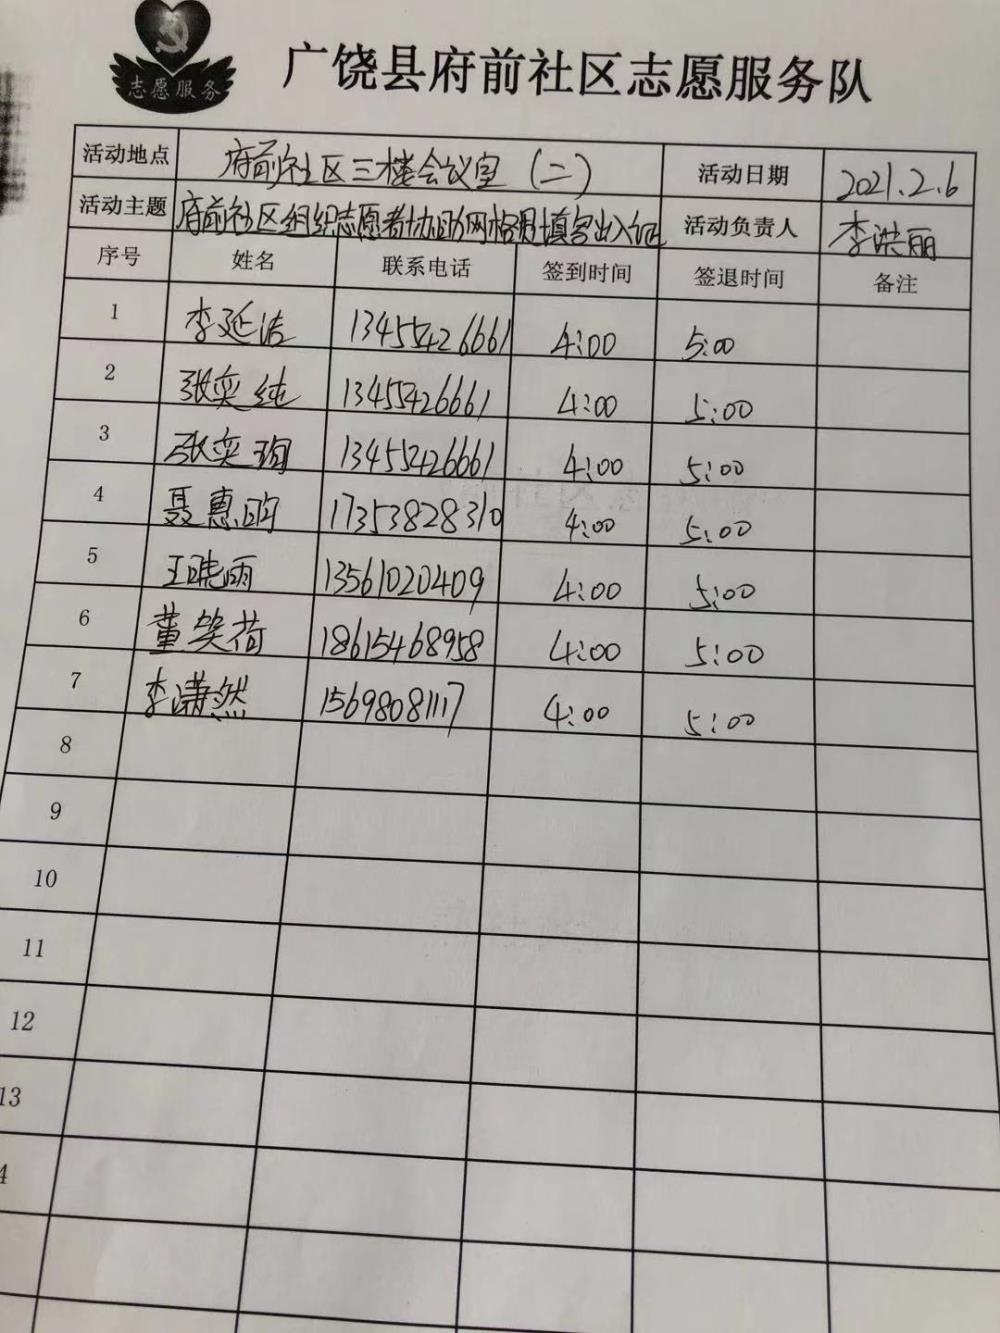 志愿服务
广饶县府前社区志愿服务队
活动地点 府前社区三楼会议室(二) 活动日期 2021.2.6
活动主题 府前社区组织志愿者协助网格员填写出入证 活动负责人 李洪丽
序号 姓名 联系电话 签到时间 签退时间 备注
1 李延洁 13455426661 4:00 5:00
2 张奕纯 13455426661 4:00 5:00
3 张奕珣 13455426661 4:00 5:00
4 聂惠昀 17353828310 4:00 5:00
5 王晓雨 13561020409 4:00 5:00
6 董笑荷 18615468958 4:00 5:00
7 李潇然 15698081117 4:00 5:00
8
9
10
11
12
13
4